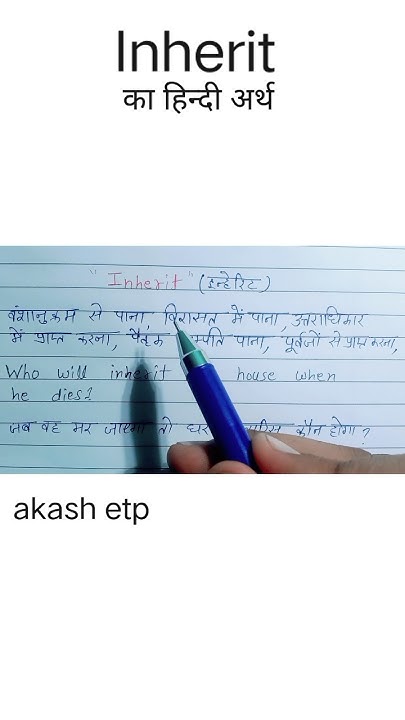 Inherit
का हिन्दी अर्थ
"Inherit" (इन्हेरिट)
वंशानुक्रम से पाना, विरासत में पाना, उत्तराधिकार
में प्राप्त करना, पैतृक म्पति पाना, पूर्वजों से प्राप्त करना,
Who will inherit house when
he dies?
जब वह मर जाएगा तो घर कौन होगा ?
akash etp